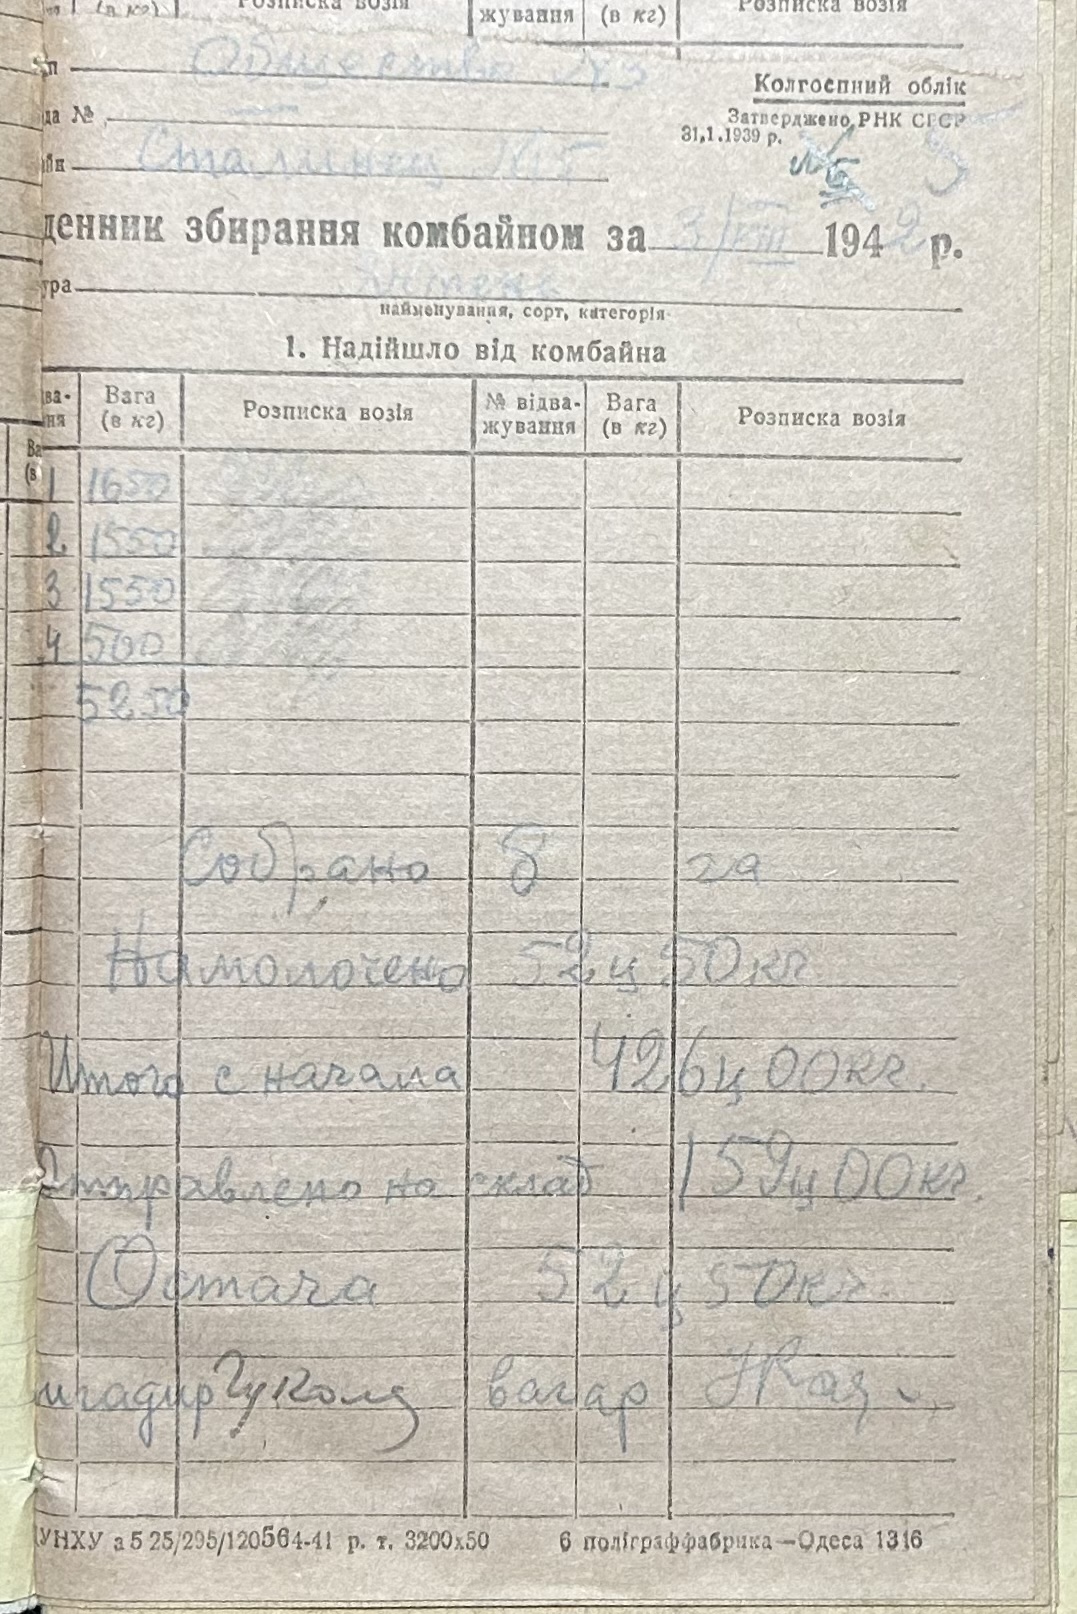 (в кг) Розписка возія жування (в кг) Розписка возія
Общество №3
Колгоспний облік
да №
Затверджено РНК СРСР
31.1.1939 р.
№5
йн Сталинец №5
денник збирання комбайном за 3/VIII 1942 р.
ура
найменування, сорт, категорія
1. Надійшло від комбайна
ва-ня Вага (в кг) Розписка возія № відва-жування Вага (в кг) Розписка возія
1 1650
2 1550
3 1550
4 500
5250
Собрано 8 га
Намолочено 52 ц 50 кг
Итого с начала 426 ц 00 кг.
Отправлено на склад 159 ц 00 кг.
Остача 52 ц 50 кг.
игадир вагар
УНХУ а 5 25/295/120564-41 р. т. 3200х50 6 поліграффабрика—Одеса 1316